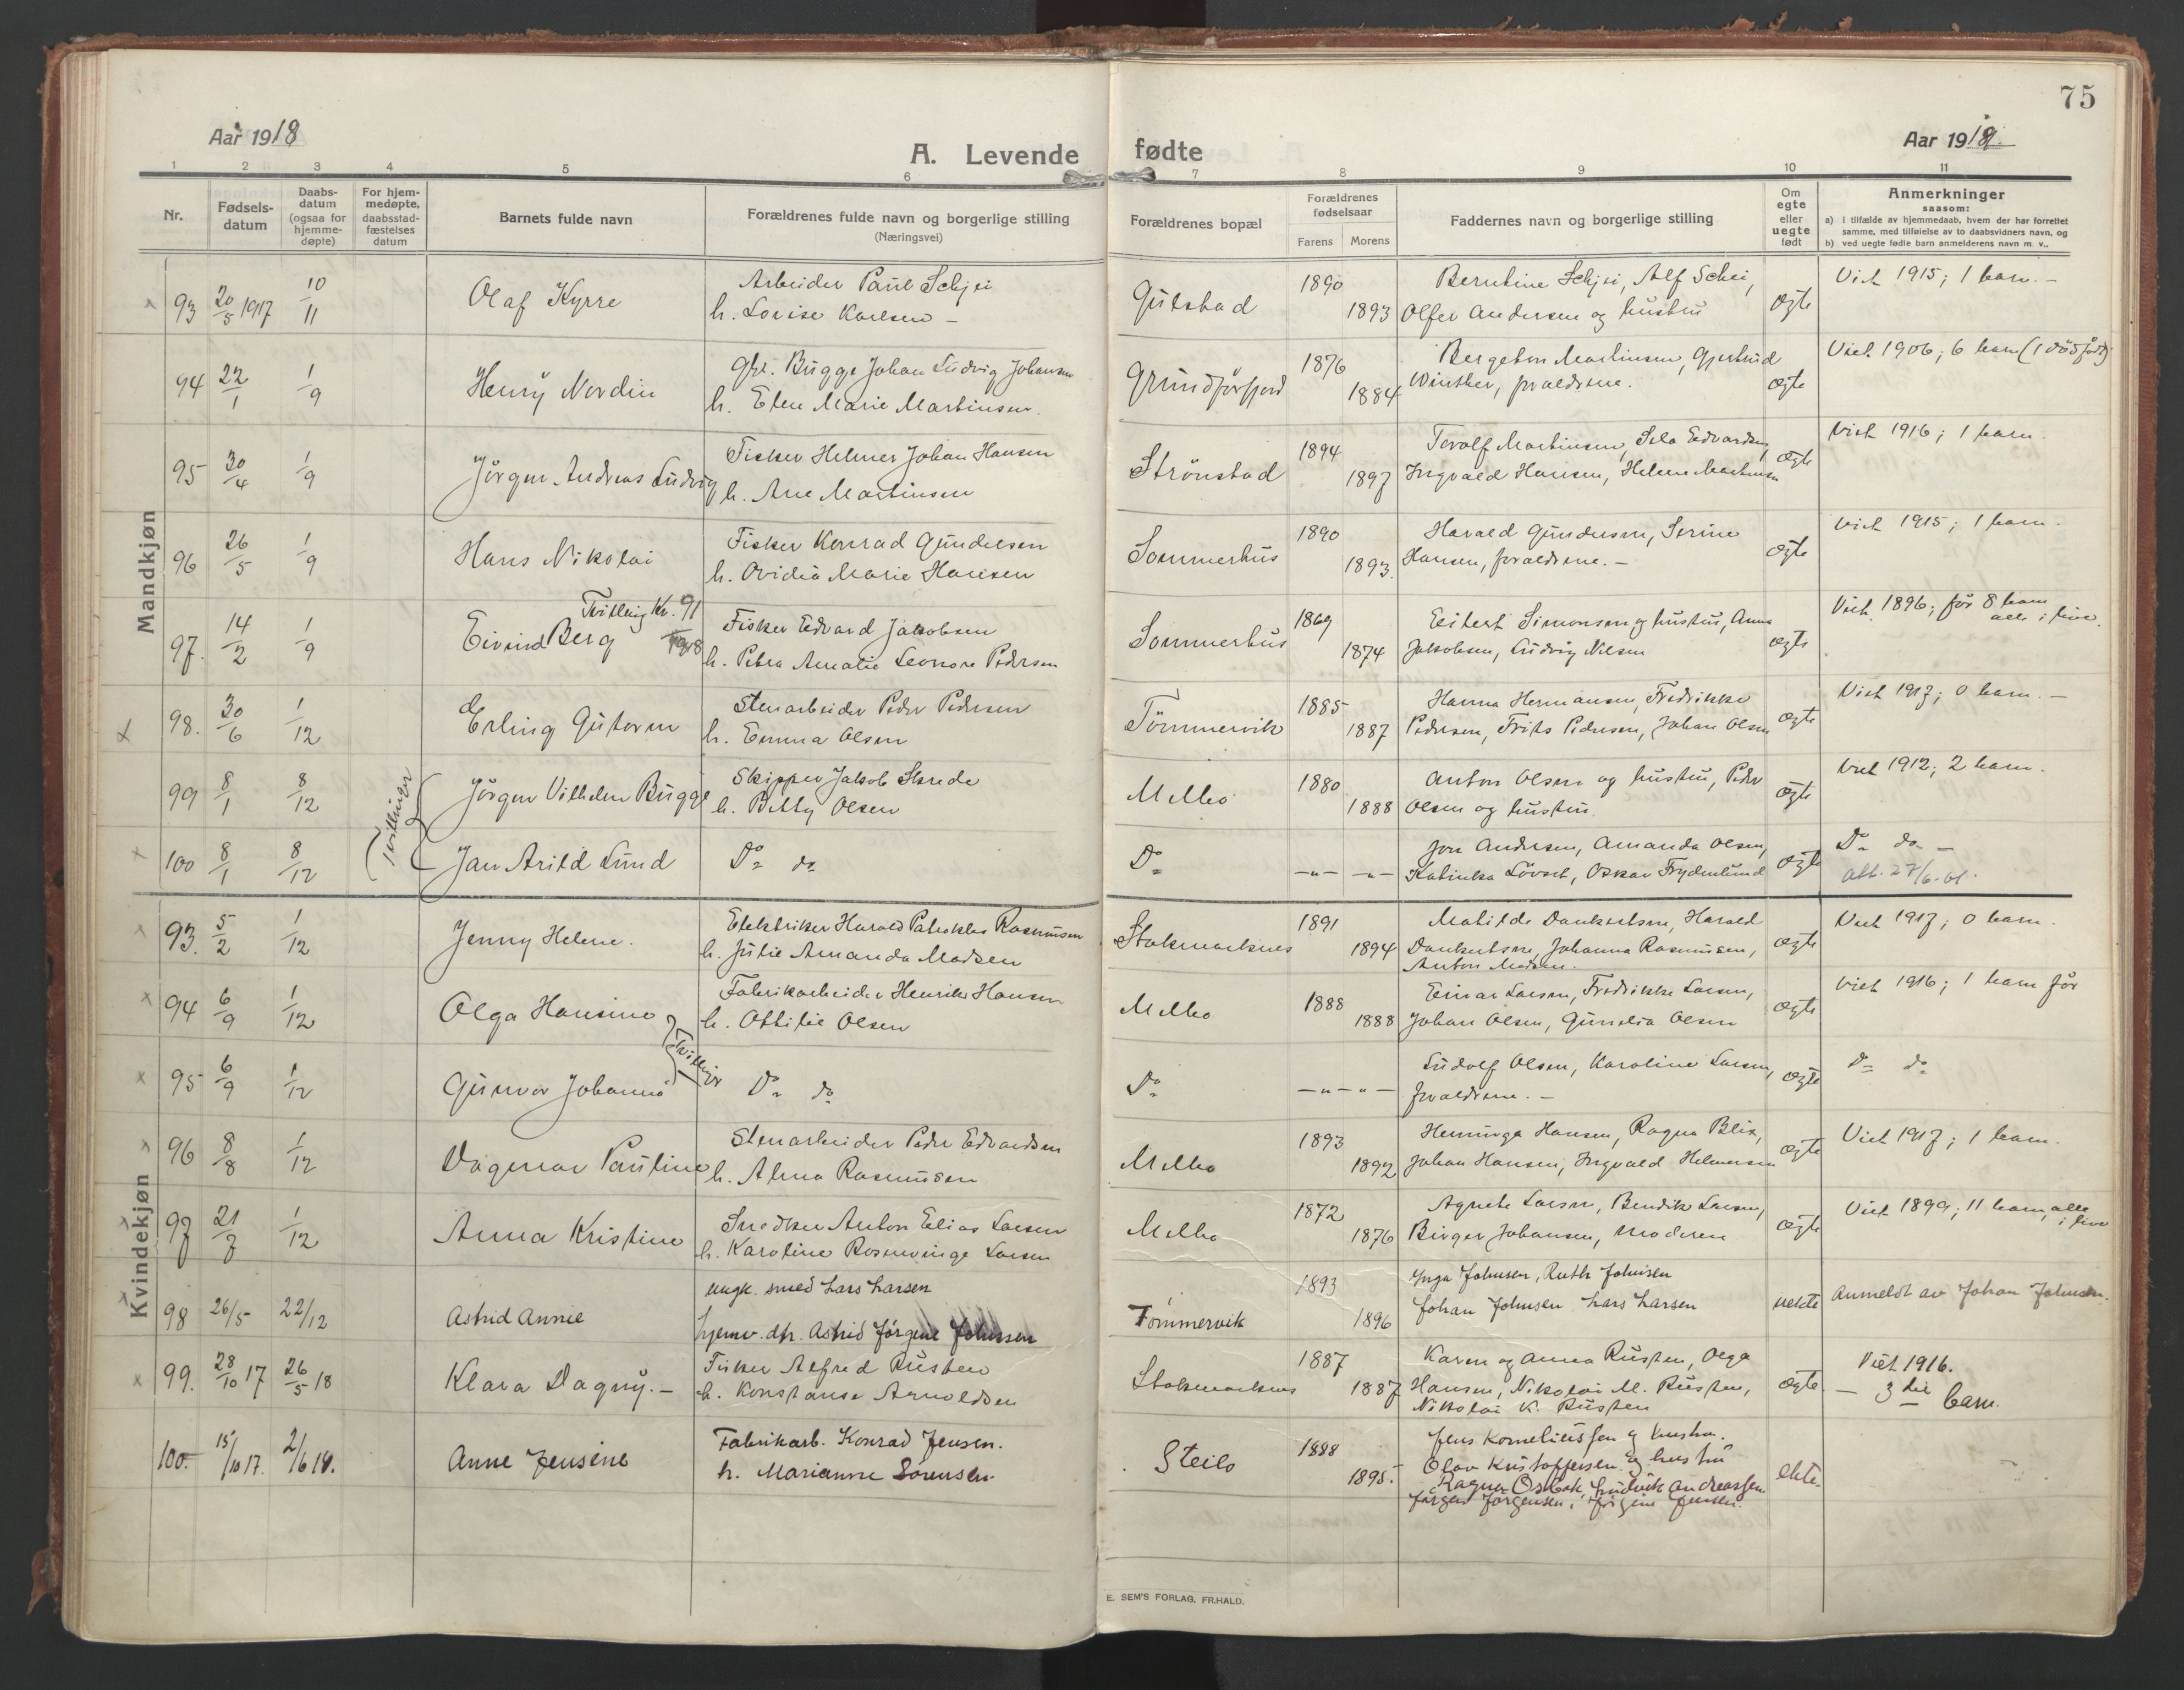 75
Aar 1918
A. Levende fødte
Aar 1918.
1 2 3 4 5 6 7 8 9 10 11
Nr.
Fødsels-
datum
Daabs-
datum
(ogsaa for
hjemme-
døpte)
For hjem-
medøpte,
daabsstad-
fæstelses
datum
Barnets fulde navn
Forældrenes fulde navn og borgerlige stilling
(Næringsvei)
Forældrenes bopæl
Forældrenes
fødselsaar
Farens Morens
Faddernes navn og borgerlige stilling
Om
egte
eller
uegte
født
Anmerkninger
saasom:
a) i tilfælde av hjemmedaab, hvem der har forrettet
samme, med tilføielse av to daabsvidners navn, og
b) ved uegte fødte barn anmelderens navn m. v..
Mandkjøn
93 20/5 1917 10/11 Olaf Kyrre Arbeider Paul Schjei Gulstad 1890 Berntine Schjei, Alf Schei, ægte Viet 1915; 1 barn. –
h. Lovise Karlsen – 1893 Olfer Andersen og hustru
94 22/1 1/9 Henry Nordin Gbr. Bugge Johan Ludvig Johansen Grundførfjord 1876 Bergeton Martinsen, Gjertrud ægte Viet 1906; 6 barn (1 dødfødt)
h. Elen Marie Martinsen. 1884 Winther, forældrene.
95 30/4 1/9 Jörgen Andreas Ludvig Fisker Helmer Johan Hansen Strönstad 1894 Torolf Martinsen, Edvardsen, ægte Viet 1916; 1 barn.
h. Ane Martinsen 1897 Ingvald Hansen, Helene Martinsen
96 26/5 1/9 Hans Nikolai Fisker Konrad Gundersen Sommerhus 1890 Harald Gundersen, Serine ægte Viet 1915; 1 barn.
h. Ovidia Marie Hansen 1893. Hansen, forældrene. –
Tvilling Kv. 91 1918
97. 14/2 1/9 Eivind Berg Fisker Edvard Jakobsen Sommerhus 1869 Eilert Simonsen og hustru, Anna ægte Viet 1896; før 8 barn
h. Petra Amalie Leonore Pedersen 1874 Jakobsen, Ludvig Nilsen alle i live.
98. 30/6 1/12 Erling Gutorm Stenarbeider Peder Pedersen Tömmervik 1885 Hanna Hermansen, Fredrikke ægte Viet 1917; 0 barn. –
h. Emma Olsen 1887 Pedersen, Frits Pedersen, Johan Olsen
Tvillinger
99 8/1 8/12 Jörgen Vilhelm Bugge Skipper Jakob Skrede Melbo 1880 Anton Olsen og hustru, Peder ægte Viet 1912; 2 barn.
h. Betty Olsen 1888 Olsen og hustru.
100 8/1 8/12 Jan Arild Lund Do do Do –"– –"– Jon Andersen, Amanda Olsen, ægte Do do –
Katinka Lövset, Oskar Frydenlund Att. 27/6-61.
Kvindekjøn
93. 5/2 1/12 Jenny Helene. Elektriker Harald Patroklus Rasmussen Stokmarknes 1891 Matilde Dankertsen, Harald ægte Viet 1917; 0 barn.
h. Julie Amanda Madsen 1894 Dankertsen, Johanna Rasmussen,
Anton Madsen.
94 6/9 1/12 Olga Hansine Fabrikarbeider Henrik Hansen Melbo 1888 Einar Larsen, Fredrikke Larsen, ægte Viet 1916; 1 barn før
h. Ottilie Olsen 1888 Johan Olsen, Gunelia Olsen
Tvillinger
95 6/9 1/12 Gunvor Johanna Do do Do –"–"– Ludolf Olsen, Karoline Larsen, ægte Do do
forældrene. –
96 8/8 1/12 Dagmar Pauline Stenarbeider Peder Edvardsen Melbo 1893 Henninga Hansen, Ragna Blix, ægte Viet 1917; 1 barn.
h. Alma Rasmussen 1892 Johan Hansen, Ingvald Helmersen
97 21/7 1/12 Anna Kristine Snedker Anton Elias Larsen Melbo 1872 Agnete Larsen, Bendik Larsen, ægte Viet 1899; 11 barn, alle
h. Karoline Rosenvinge Larsen 1876 Birger Johansen, moderen i live
98 26/5 22/12 Astrid Annie ungk. smed Lars Larsen Tömmervik 1893 Inga Johnsen, Ruth Johnsen uekte Anmeldt av Johan Johnsen.
hjemv. dtr. Astrid Jörgine Johnsen 1896 Johan Johnsen Lars Larsen
99. 28/10 17 26/5 18 Klara Dagny. – Fisker Alfred Rusten Stokmarknes 1887 Karen og Anna Rusten, Olga ægte Viet 1916.
h. Konstanse Arnoldsen 1887 Hansen, Nikolai M. Rusten, – 3die barn.
Nikolai K. Rusten
100. 15/10 17. 2/6 18. Anne Jensine Fabrikarb. Konrad Jensen. Steilo 1888 Jens Korneliussen & hustru. ekte.
h. Marianne Sörensen. 1895. Olav Kristoffersen & hustru
Ragna Osbak, Ludvik Andreassen
Jörgen Jörgensen, Jörgine Jensen.
E. SEM'S FORLAG, FR.HALD.